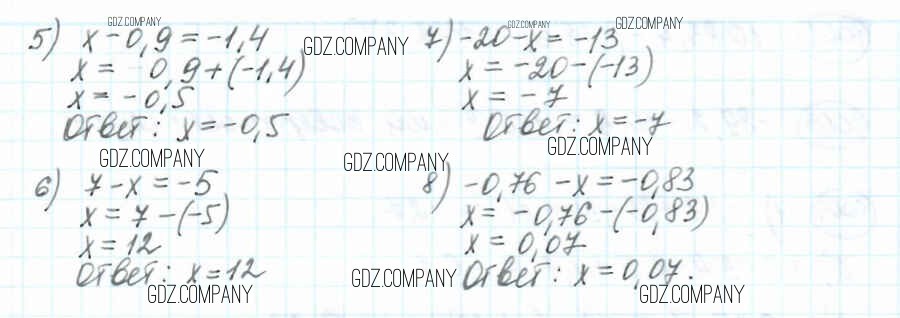 GDZ.COMPANY
5) x - 0,9 = -1,4
GDZ.COMPANY
x = 0,9 + (-1,4)
x = -0,5
Ответ: x = -0,5
GDZ.COMPANY
6) 7 - x = -5
x = 7 - (-5)
x = 12
Ответ: x = 12
GDZ.COMPANY
GDZ.COMPANY
GDZ.COMPANY
7) -20 - x = -13
x = -20 - (-13)
x = -7
Ответ: x = -7
GDZ.COMPANY
GDZ.COMPANY
8) -0,76 - x = -0,83
x = -0,76 - (-0,83)
x = 0,07
GDZ.COMPANY
Ответ: x = 0,07.
GDZ.COMPANY